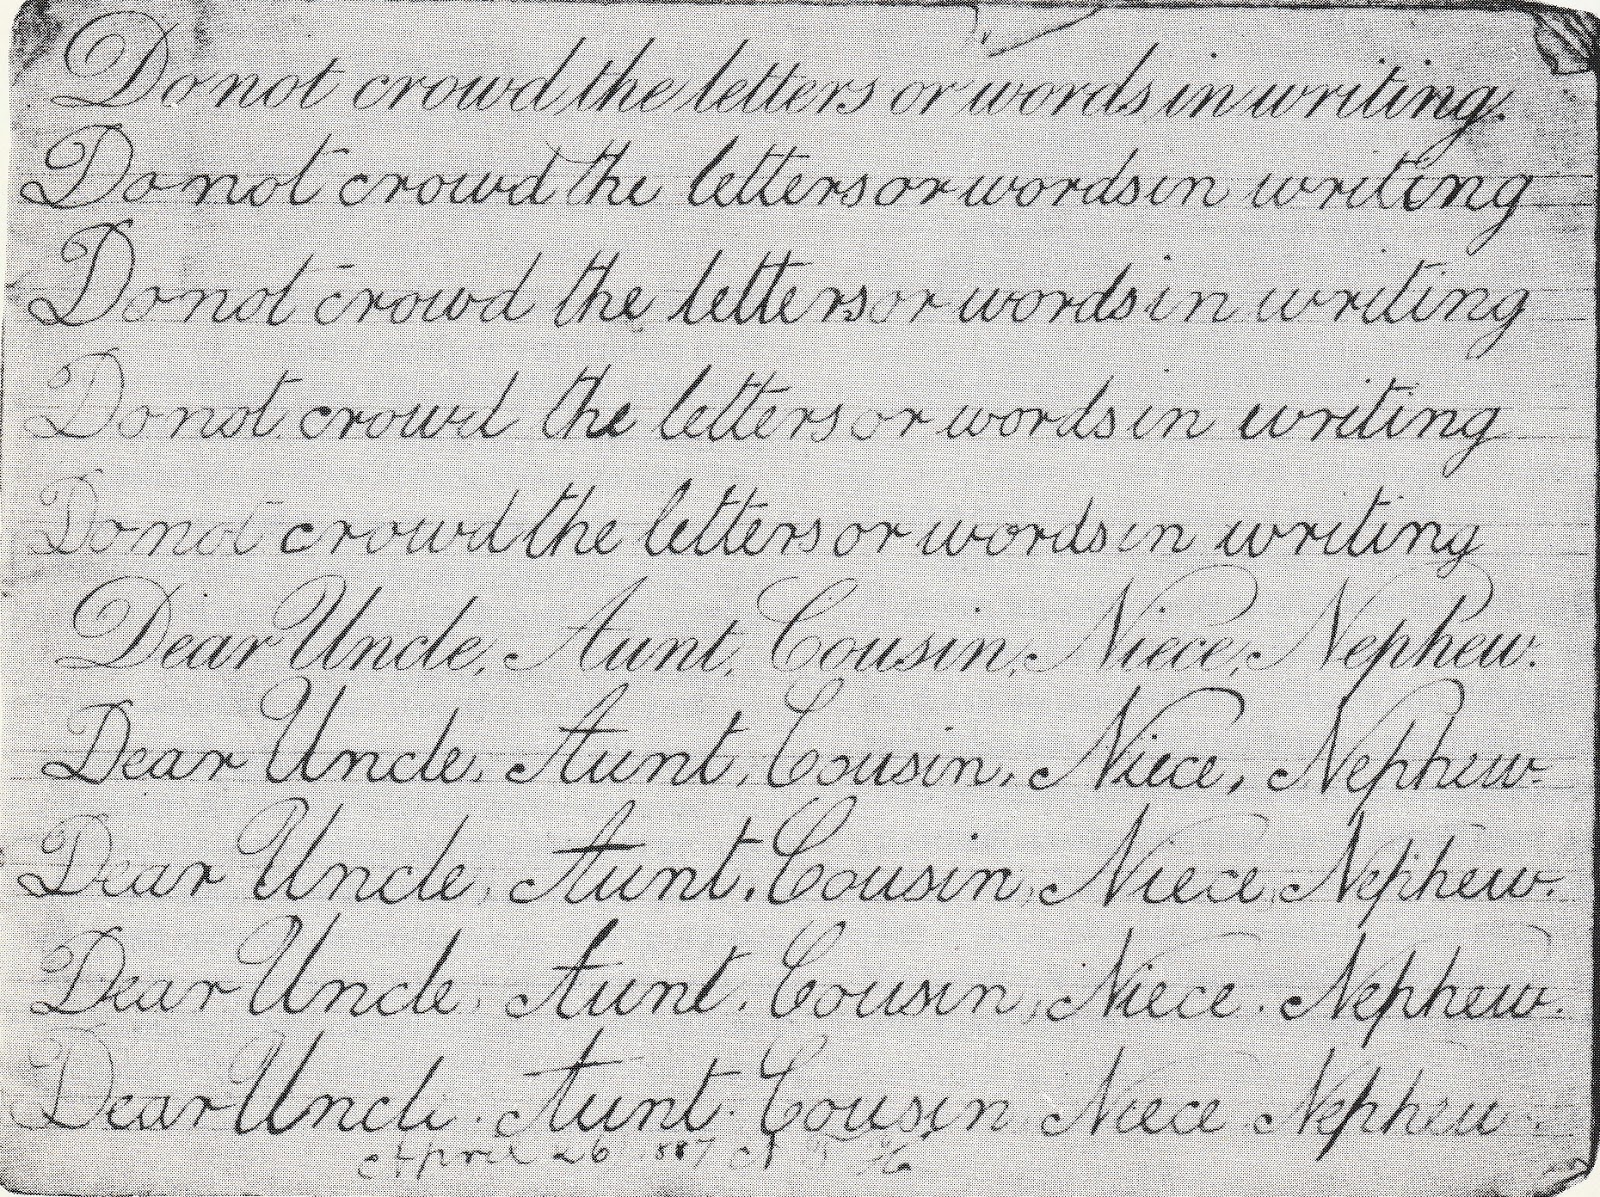 Do not crowd the letters or words in writing.
Do not crowd the letters or words in writing
Do not crowd the letters or words in writing
Do not crowd the letters or words in writing
Do not crowd the letters or words in writing
Dear Uncle, Aunt, Cousin, Niece, Nephew.
Dear Uncle, Aunt, Cousin, Niece, Nephew
Dear Uncle, Aunt, Cousin, Niece, Nephew.
Dear Uncle, Aunt, Cousin, Niece, Nephew.
Dear Uncle, Aunt, Cousin Niece Nephew
April 26